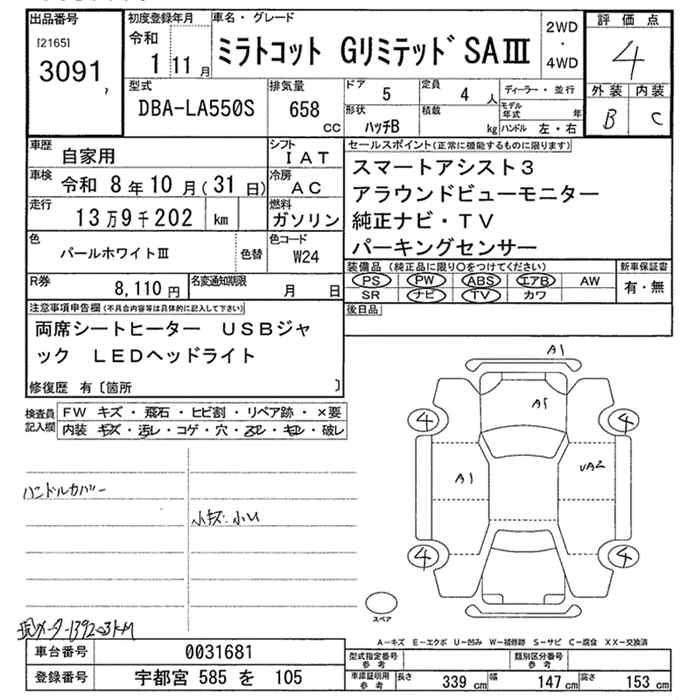 出品番号
[2165]
3091
初度登録年月
令和
1 11 月
車名・グレード
ミラトコット GリミテッドSAⅢ
2WD
・
4WD
評価点
4
外装 内装
B C
型式
DBA-LA550S
排気量
658
CC
ドア
5
定員
4 人
ディーラー・並行
形状
ハッチB
積載
kg
モデル年式
年
ハンドル 左・右
車歴
自家用
シフト
IAT
車検
令和 8年10月(31日)
冷房
AC
走行
13万9千202 km
燃料
ガソリン
色
パールホワイトⅢ
色替
色コード
W24
R券
8,110円
名変通知期限
月 日
セールスポイント(正常に機能するものに限ります)
スマートアシスト3
アラウンドビューモニター
純正ナビ・TV
パーキングセンサー
装備品 (純正品に限り○をつけてください)
PS PW ABS エアB AW
SR ナビ TV カワ
新車保証書
有・無
後日品
注意事項申告欄(不具合内容等は具体的に記入して下さい)
両席シートヒーター USBジャ
ック LEDヘッドライト
修復歴 有〔箇所 〕
検査員
記入欄
FW キズ・飛石・ヒビ割・リペア跡・×要
内装 キズ・汚レ・コゲ・穴・スレ・キレ・破レ
ハンドルカバー
小キズ 小U
現メーター139203KM
A1
A1
4 4
A1
UA2
4 4
スペア
A-キズ E-エクボ U-凹み W-補修跡 S-サビ C-腐食 XX-交換済
車台番号
0031681
登録番号
宇都宮 585 を 105
型式指定番号
参考
類別区分番号
参考
車庫証明用
参考
長さ
339 cm
幅
147 cm
高さ
153 cm